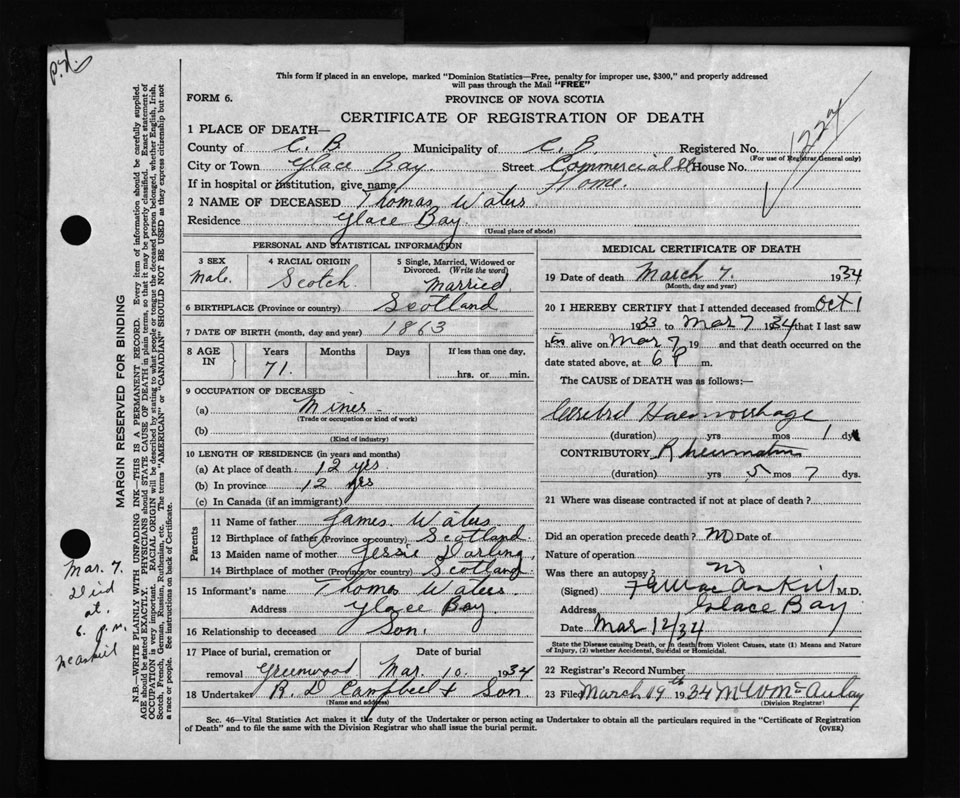 This form if placed in an envelope, marked "Dominion Statistics—Free, penalty for improper use, $300," and properly addressed
will pass through the Mail "FREE"
FORM 6.
PROVINCE OF NOVA SCOTIA
CERTIFICATE OF REGISTRATION OF DEATH
1227
1 PLACE OF DEATH—
County of C. B. Municipality of C. B. Registered No.
(For use of Registrar General only)
City or Town Glace Bay Street Commercial St House No.
If in hospital or institution, give name Home.
2 NAME OF DECEASED Thomas Waters.
Residence Glace Bay.
(Usual place of abode)
PERSONAL AND STATISTICAL INFORMATION
3 SEX
Male.
4 RACIAL ORIGIN
Scotch.
5 Single, Married, Widowed or
Divorced. (Write the word)
Married.
6 BIRTHPLACE (Province or country) Scotland
7 DATE OF BIRTH (month, day and year) 1863
8 AGE
IN
Years
71.
Months
Days
If less than one day,
hrs. or min.
9 OCCUPATION OF DECEASED
(a) Miner
(Trade or occupation or kind of work)
(b)
(Kind of industry)
10 LENGTH OF RESIDENCE (in years and months)
(a) At place of death 12 yrs.
(b) In province 12 yrs
(c) In Canada (if an immigrant)
Parents
11 Name of father James. Waters
12 Birthplace of father (Province or country) Scotland.
13 Maiden name of mother Jessie Darling.
14 Birthplace of mother (Province or country) Scotland.
15 Informant's name Thomas Waters.
Address Glace Bay.
16 Relationship to deceased Son.
17 Place of burial, cremation or
removal Greenwood
Date of burial
Mar. 10. 1934
18 Undertaker R. D Campbell & Son
(Name and address)
MEDICAL CERTIFICATE OF DEATH
19 Date of death March 7. 1934
(Month, day and year)
20 I HEREBY CERTIFY that I attended deceased from Oct 1
1933 to Mar 7 1934 that I last saw
him alive on Mar 7 19 and that death occurred on the
date stated above, at 6 P m.
The CAUSE of DEATH was as follows:—
Cerebral Haemorrhage
(duration) yrs mos 1 dys
CONTRIBUTORY Rheumatism
(duration) yrs 5 mos 7 dys.
21 Where was disease contracted if not at place of death?
Did an operation precede death? No Date of
Nature of operation
Was there an autopsy? no
(Signed) MacAskill M.D.
Address Glace Bay
Date Mar 12/34
State the Disease causing Death, or in death from Violent Causes, state (1) Means and Nature
of Injury, (2) whether Accidental, Suicidal or Homicidal.
22 Registrar's Record Number
23 Filed March 19th 1934 McAulay
(Division Registrar)
Sec. 46—Vital Statistics Act makes it the duty of the Undertaker or person acting as Undertaker to obtain all the particulars required in the "Certificate of Registration
of Death" and to file the same with the Division Registrar who shall issue the burial permit.
(OVER)
MARGIN RESERVED FOR BINDING
N.B.—WRITE PLAINLY WITH UNFADING INK—THIS IS A PERMANENT RECORD. Every item of information should be carefully supplied.
AGE should be stated EXACTLY. PHYSICIANS should STATE CAUSE OF DEATH in plain terms, so that it may be properly classified. Exact statement of
OCCUPATION is very important. RACIAL ORIGIN will be described by stating to what people or tongue the deceased person belonged, whether English, Irish,
Scotch, French, German, Russian, Ruthenian, etc. The terms "AMERICAN" or "CANADIAN" SHOULD NOT BE USED as they express citizenship but not
a race or people. See instructions on back of Certificate.
Mar. 7.
Died
at.
6. p.m.